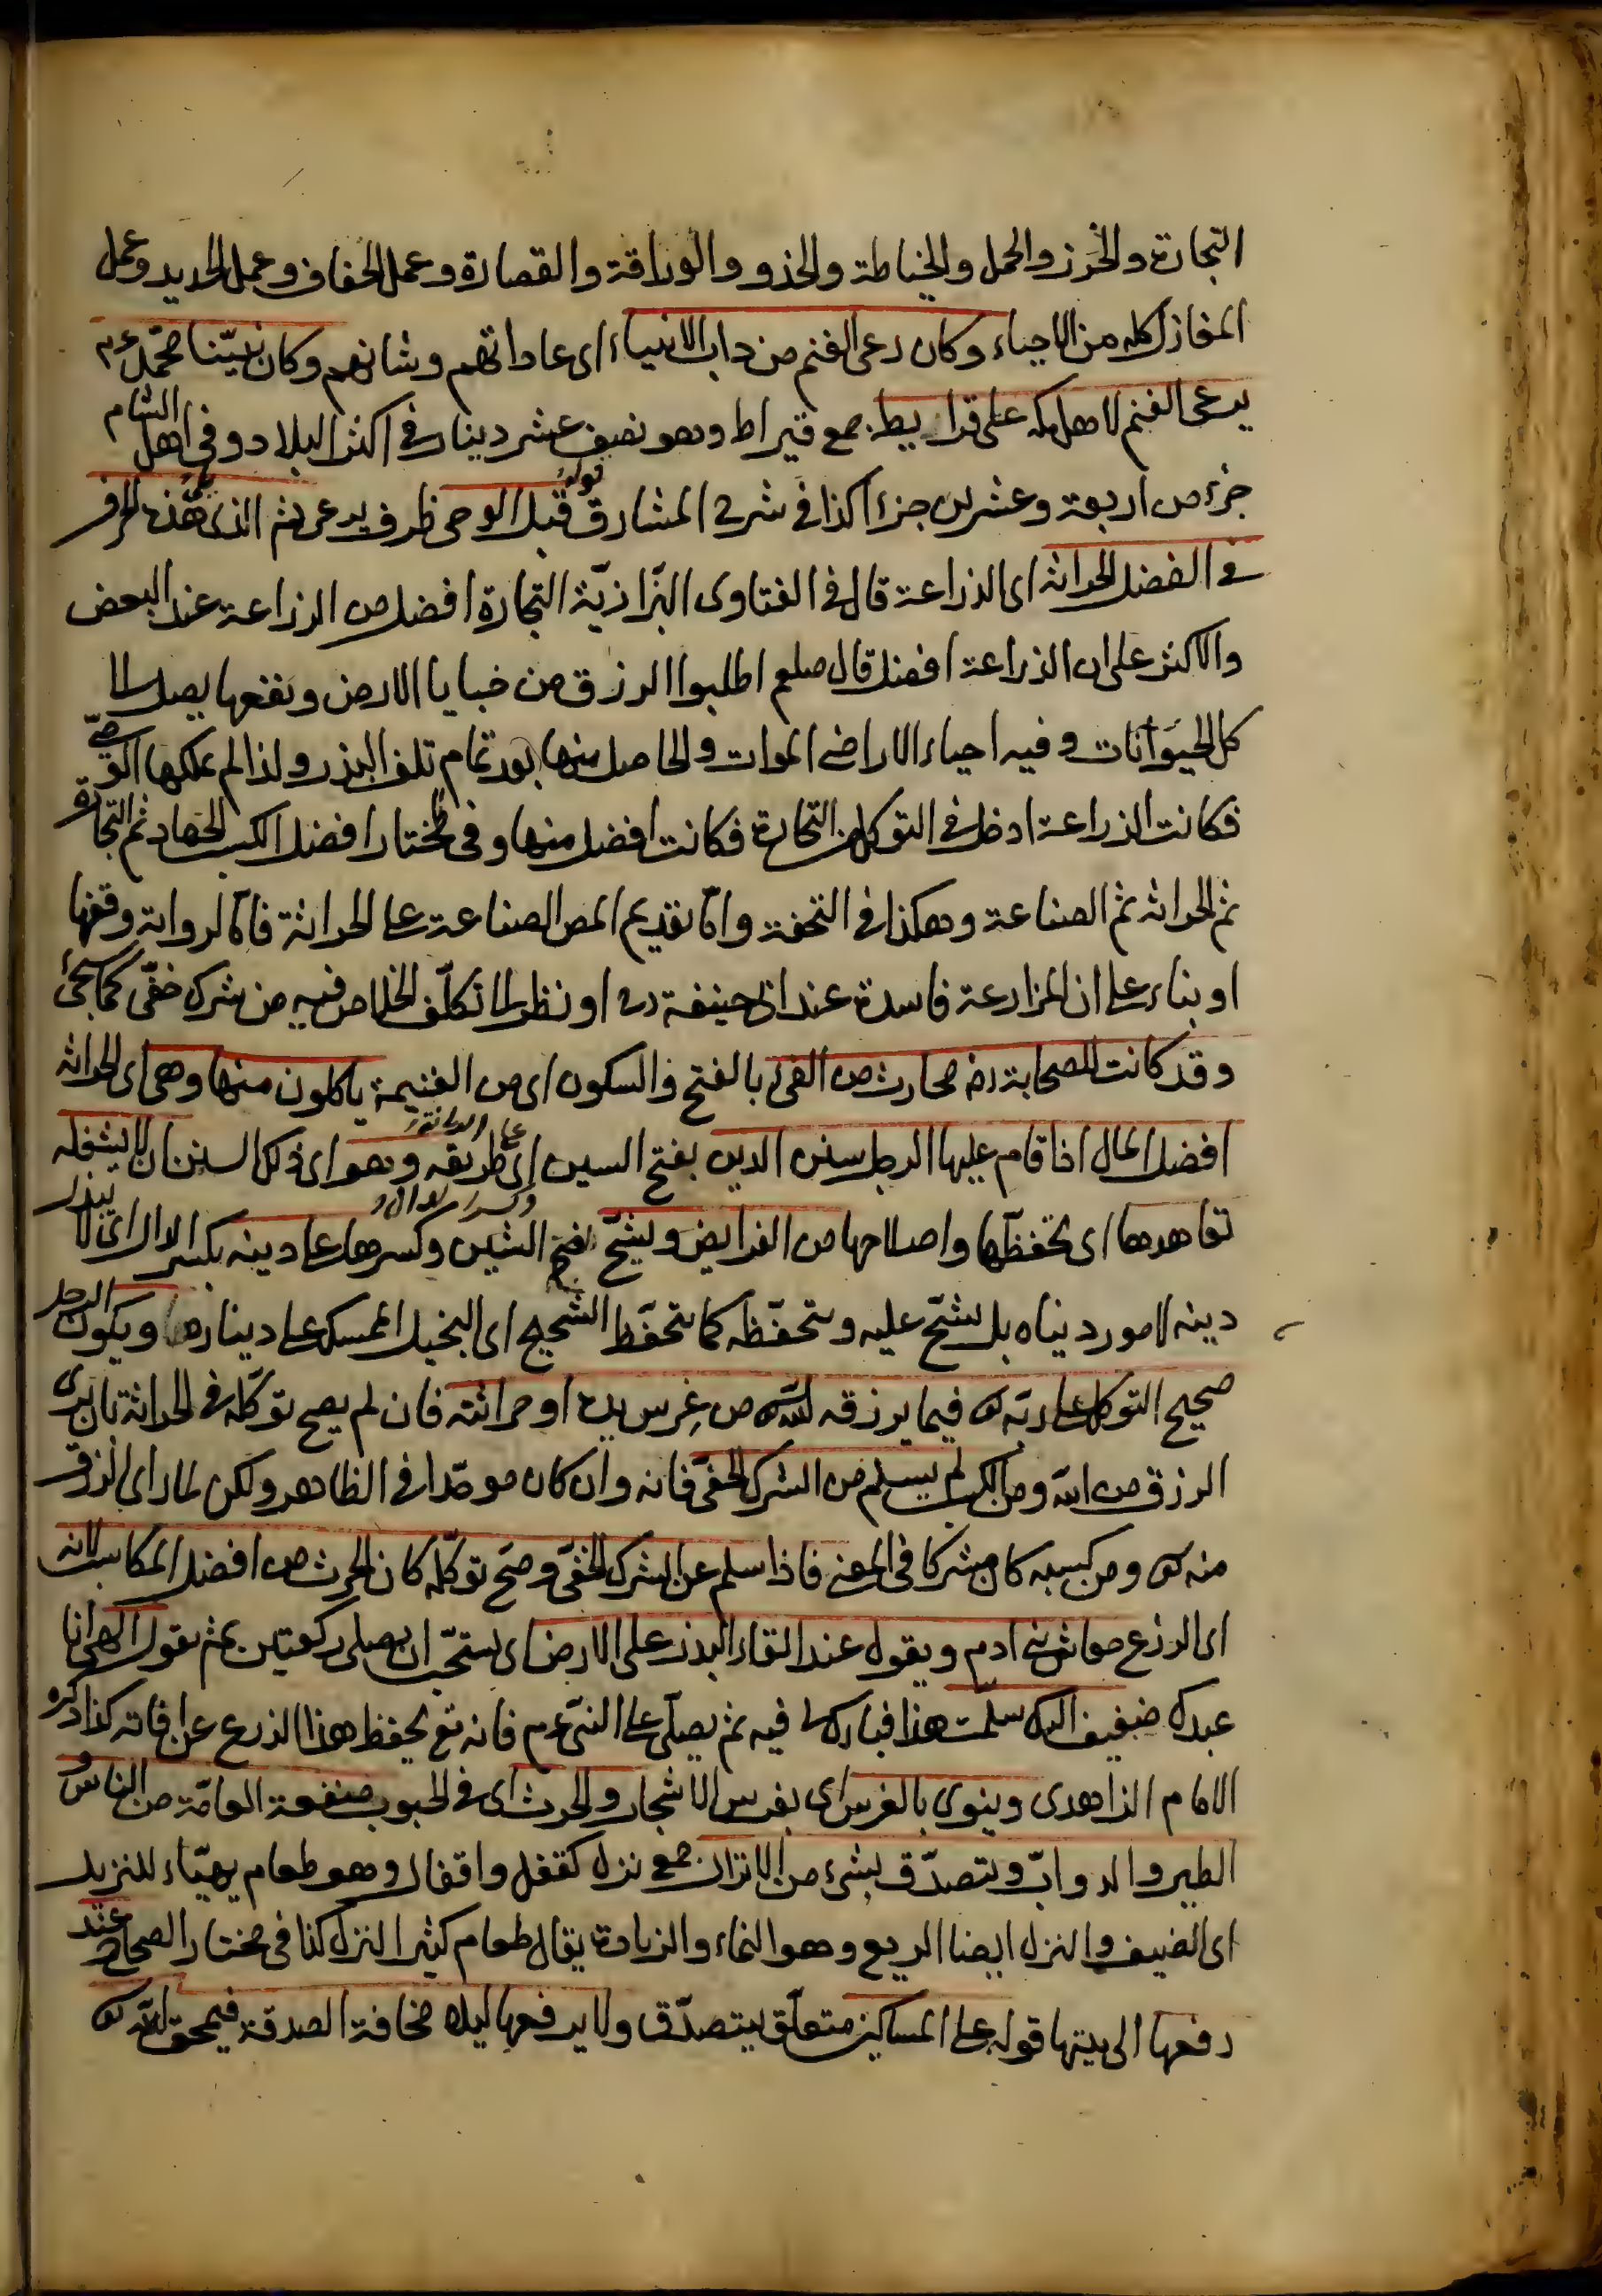 التجارة والخرز والحمل والخياطة والحذو والوراقة والقصارة وعمل الخفاف وعمل الحديد وعمل
المغازل كله من الاحياء وكان رعى الغنم من داب الانبياء اى عاداتهم وشانهم وكان نبيّنا محمّد عم
يرعى الغنم لاهل مكه على قراريط جمع قيراط وهو نصف عشر دينار فى اكثر البلاد وفى اهل الشام
جزء من اربعة وعشرين جزءا كذا فى شرح المشارق قوله قبل الوحى ظرف يرعى ثم الذى هذه الحرف
فى الفضل الحراثه اى الزراعة قال فى الفتاوى البزّازيّة التجارة افضل من الزراعة عند البعض
والاكثر على ان الزراعة افضل قال صلعم اطلبوا الرزق من خبايا الارض ونفعها يصل الى
كل الحيوانات وفيه احياء الاراضى الموات والحاصل منها بعد تمام تلف البذر ولذا لم يملكها الوصّى
فكانت الزراعة ادخل فى التوكل من التجارة فكانت افضل منها وفى المختار افضل الكسب الجهاد ثم التجارة
ثم الحراثه ثم الصناعة وهكذا فى التحفة وامّا تقديم المص الصناعة على الحراثة فامّا لرواية وقفها
او بناء على ان المزارعة فاسدة عند ابى حنيفة رح او نظر الى تكلّف الخلاص فيه من شرك خفّى كما سيجئ
وقد كانت للصحابة رضه محارث من الفئ بالفتح والسكون اى من الغنيمة ياكلون منها وهى اى الحراثه
افضل المال اذا قام عليها الرجل سنن الدين بفتح السين اى طريقه وهو اى ذلك السنن ان لا يشغله
تعاهدها اى تحفّظها واصلاحها من الفرايض ويشحّ بفتح الشين وكسرها على دينه بكسر الدال اى لا يبذل
دينه لامور دنياه بل يشحّ عليه ويتحفّظه كما يتحفّظ الشحيح اى البخيل الممسك على دينارها ويكون الرجل
صحيح التوكل على ربّه تع فيما يرزقه الله تع من غرس يده او حراثته فان لم يصح توكّله فى الحراثة بان يرى
الرزق من الله ومن الكسب لم يسلم من الشرك الخفّى فانه وان كان موحّدا فى الظاهر ولكن لما راى الرزق
منه تع ومن كسبه كان مشركا فى المعنى فاذا سلم عن الشرك الخفّى وصحّ توكّله كان الحرث من افضل المكاسب لانه
اى الزرع معاش بنى ادم ويقول عند القاء البذر على الارض اى يستحّب ان يصلى ركعتين ثم يقول الهى انا
عبدك ضعيف اليك سلّمت هذا فبارك لى فيه ثم يصلّى على النبّى عم فانه تع يحفظ هذا الزرع عن افاته كذا ذكره
الامام الزاهدى وينوى بالغرس اى بغرس الاشجار والحرث اى فى الحبوب منفعة العامّة من الناس و
الطير والدوابّ ويتصدّق بشئ من الانزال جمع نزل كقفل واقفال وهو طعام يهيّاء للنزيل
اى الضيف والنزل ايضا الريع وهو النماء والزيادة يقال طعام كثير النزل كذا فى مختار الصحاح عند
رفعها الى بيتها قوله على المساكين متعلّق بيتصدّق ولا يرفعها ليلا مخافة الصدقة فيمحق الله تع